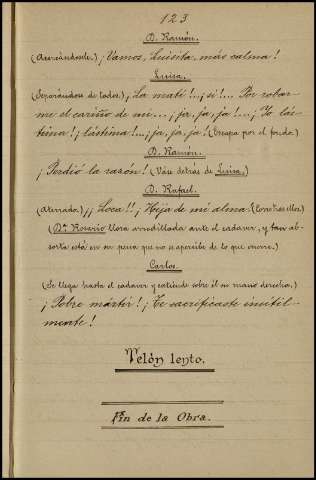 123
D. Ramón.
(Acercándosele.) ¡Vamos, Luisita, más calma!
Luisa.
(Separándose de todos.) ¡La maté!...¡sí!... Por robar-
me el cariño de mi...., ¡ja, ja, ja!....¡Yo lás-
tima!; ¡lástima!...¡ja, ja, ja! (Escapa por el fondo.)
D. Ramón.
¡Perdió la razón! (Váse detrás de Luisa.)
D. Rafael.
(Aterrado.) ¡¡Loca!! ¡Hija de mi alma! (Corre tras ellos.)
(Dª. Rosario llora arrodillada ante el cadaver, y tan ab-
sorta está en su pena que no se apercibe de lo que ocurre.)
Carlos.
(Se llega hasta el cadaver y extiende sobre él su mano derecha.)
¡Pobre mártir! ¡Te sacrificaste inútil-
mente!
Telón lento.
Fin de la Obra.